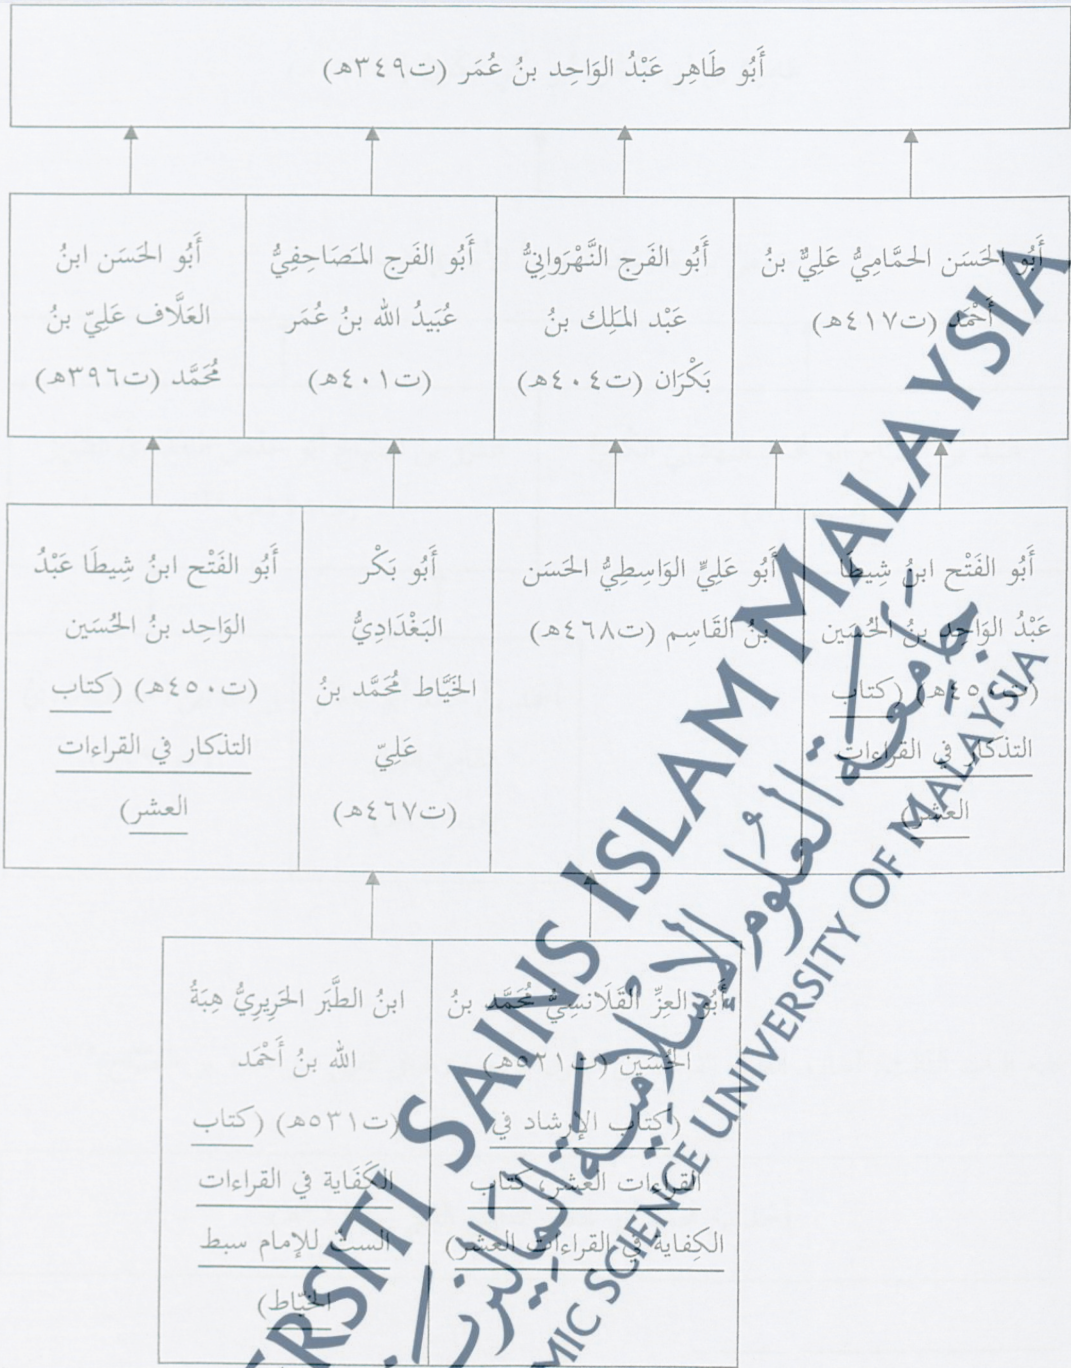 أَبُو طَاهِر عَبْدُ الوَاحِد بنُ عُمَر (ت٣٤٩هـ)
أَبُو الحَسَن الحَمَّامِيُّ عَلِيُّ بنُ
أَحْمَد (ت٤١٧هـ)
أَبُو الفَرج النَّهْرَوَانِيُّ
عَبْد المَلِك بنُ
بَكْرَان (ت٤٠٤هـ)
أَبُو الفَرج المَصَاحِفِيُّ
عُبَيدُ الله بنُ عُمَر
(ت٤٠١هـ)
أَبُو الحَسَن ابنُ
العَلَّاف عَلِيّ بنُ
مُحَمَّد (ت٣٩٦هـ)
أَبُو الفَتْح ابنُ شِيطَا
عَبْدُ الوَاحِد بنُ الحُسَين
(ت٤٥٠هـ) (كتاب
التذكار في القراءات
العشر)
أَبُو عَلِيٍّ الوَاسِطِيُّ الحَسَن
بنُ القَاسِم (ت٤٦٨هـ)
أَبُو بَكْر
البَغْدَادِيُّ
الخَيَّاط مُحَمَّد بنُ
عَلِيّ
(ت٤٦٧هـ)
أَبُو الفَتْح ابنُ شِيطَا عَبْدُ
الوَاحِد بنُ الحُسَين
(ت٤٥٠هـ) (كتاب
التذكار في القراءات
العشر)
أَبُو العِزِّ القَلَانسِيُّ مُحَمَّد بنُ
الحُسَين (ت٥٢١هـ)
(كتاب الإرشاد في
القراءات العشر، كتاب
الكِفاية في القراءات العشر)
ابنُ الطَّبَر الحَرِيرِيُّ هِبَةُ
الله بنُ أَحْمَد
(ت٥٣١هـ) (كتاب
الكَفَاية في القراءات
الست للإمام سبط
الخيّاط)
ERSITI SAINS ISLAM MALAYSIA
جامعة العلوم الإسلامية الماليزية
MIC SCIENCE UNIVERSITY OF MALAYSIA